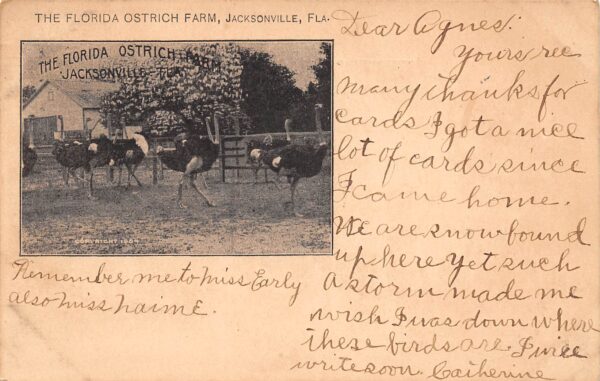 THE FLORIDA OSTRICH FARM, JACKSONVILLE, FLA.
THE FLORIDA OSTRICH FARM
JACKSONVILLE FLA.
COPYRIGHT 1904
Dear Agnes:
Yours rec
many thanks for
cards I got a nice
lot of cards since
I came home.
We are snowbound
up here yet such
a storm made me
wish I was down where
these birds are. I will
write soon. Catherine
Remember me to Miss Early
also Miss Naime.